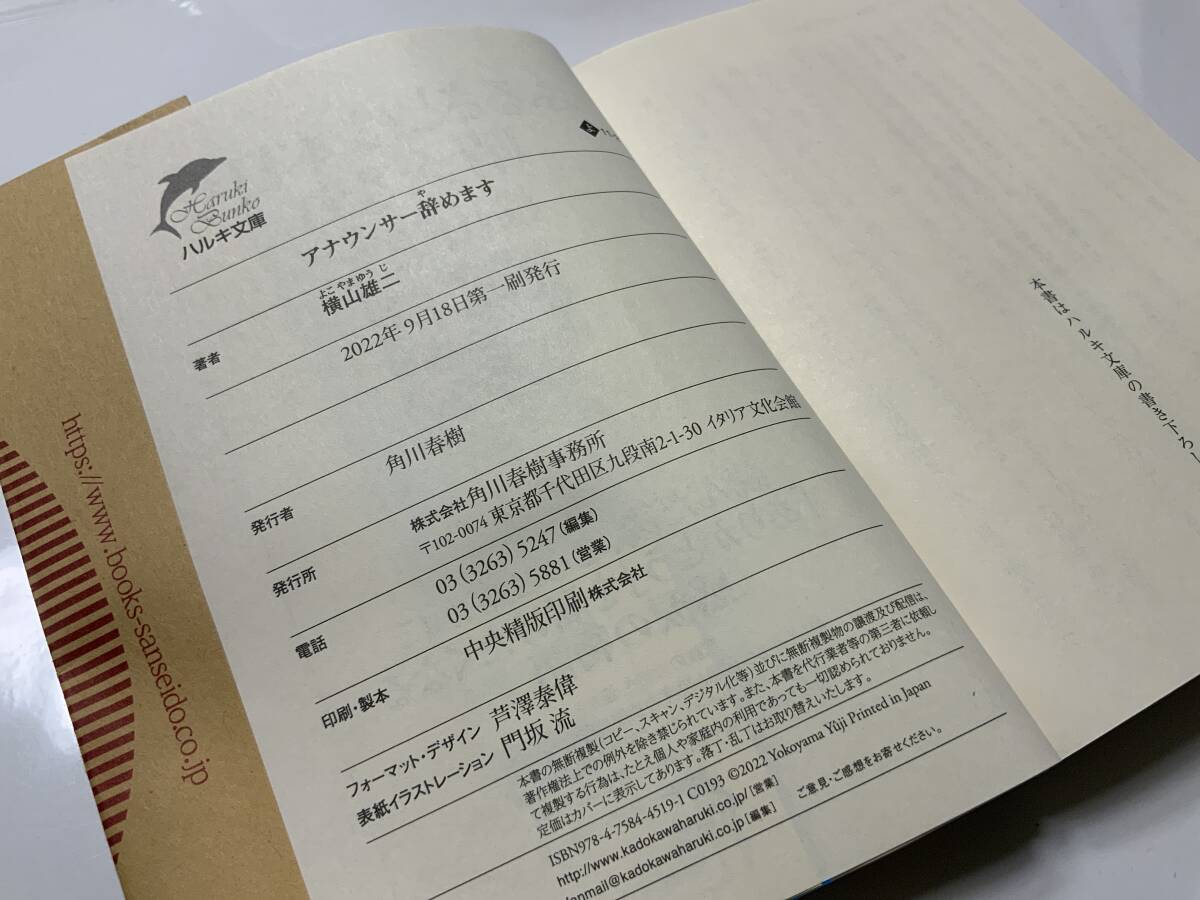 Haruki
Bunko
ハルキ文庫
アナウンサー辞めます
や
著者
横山雄二
よこやまゆうじ
2022年9月18日第一刷発行
発行者
角川春樹
発行所
株式会社角川春樹事務所
〒102-0074 東京都千代田区九段南2-1-30 イタリア文化会館
電話
03(3263)5247(編集)
03(3263)5881(営業)
印刷・製本
中央精版印刷株式会社
フォーマット・デザイン 芦澤泰偉
表紙イラストレーション 門坂 流
本書の無断複製(コピー、スキャン、デジタル化等)並びに無断複製物の譲渡及び配信は、
著作権法上での例外を除き禁じられています。また、本書を代行業者等の第三者に依頼し
て複製する行為は、たとえ個人や家庭内の利用であっても一切認められておりません。
定価はカバーに表示してあります。落丁・乱丁はお取り替えいたします。
ISBN978-4-7584-4519-1 C0193 ©2022 Yokoyama Yûji Printed in Japan
http://www.kadokawaharuki.co.jp/[営業]
fanmail@kadokawaharuki.co.jp[編集] ご意見・ご感想をお寄せください。
本書はハルキ文庫の書き下ろし
https://www.books-sanseido.co.jp